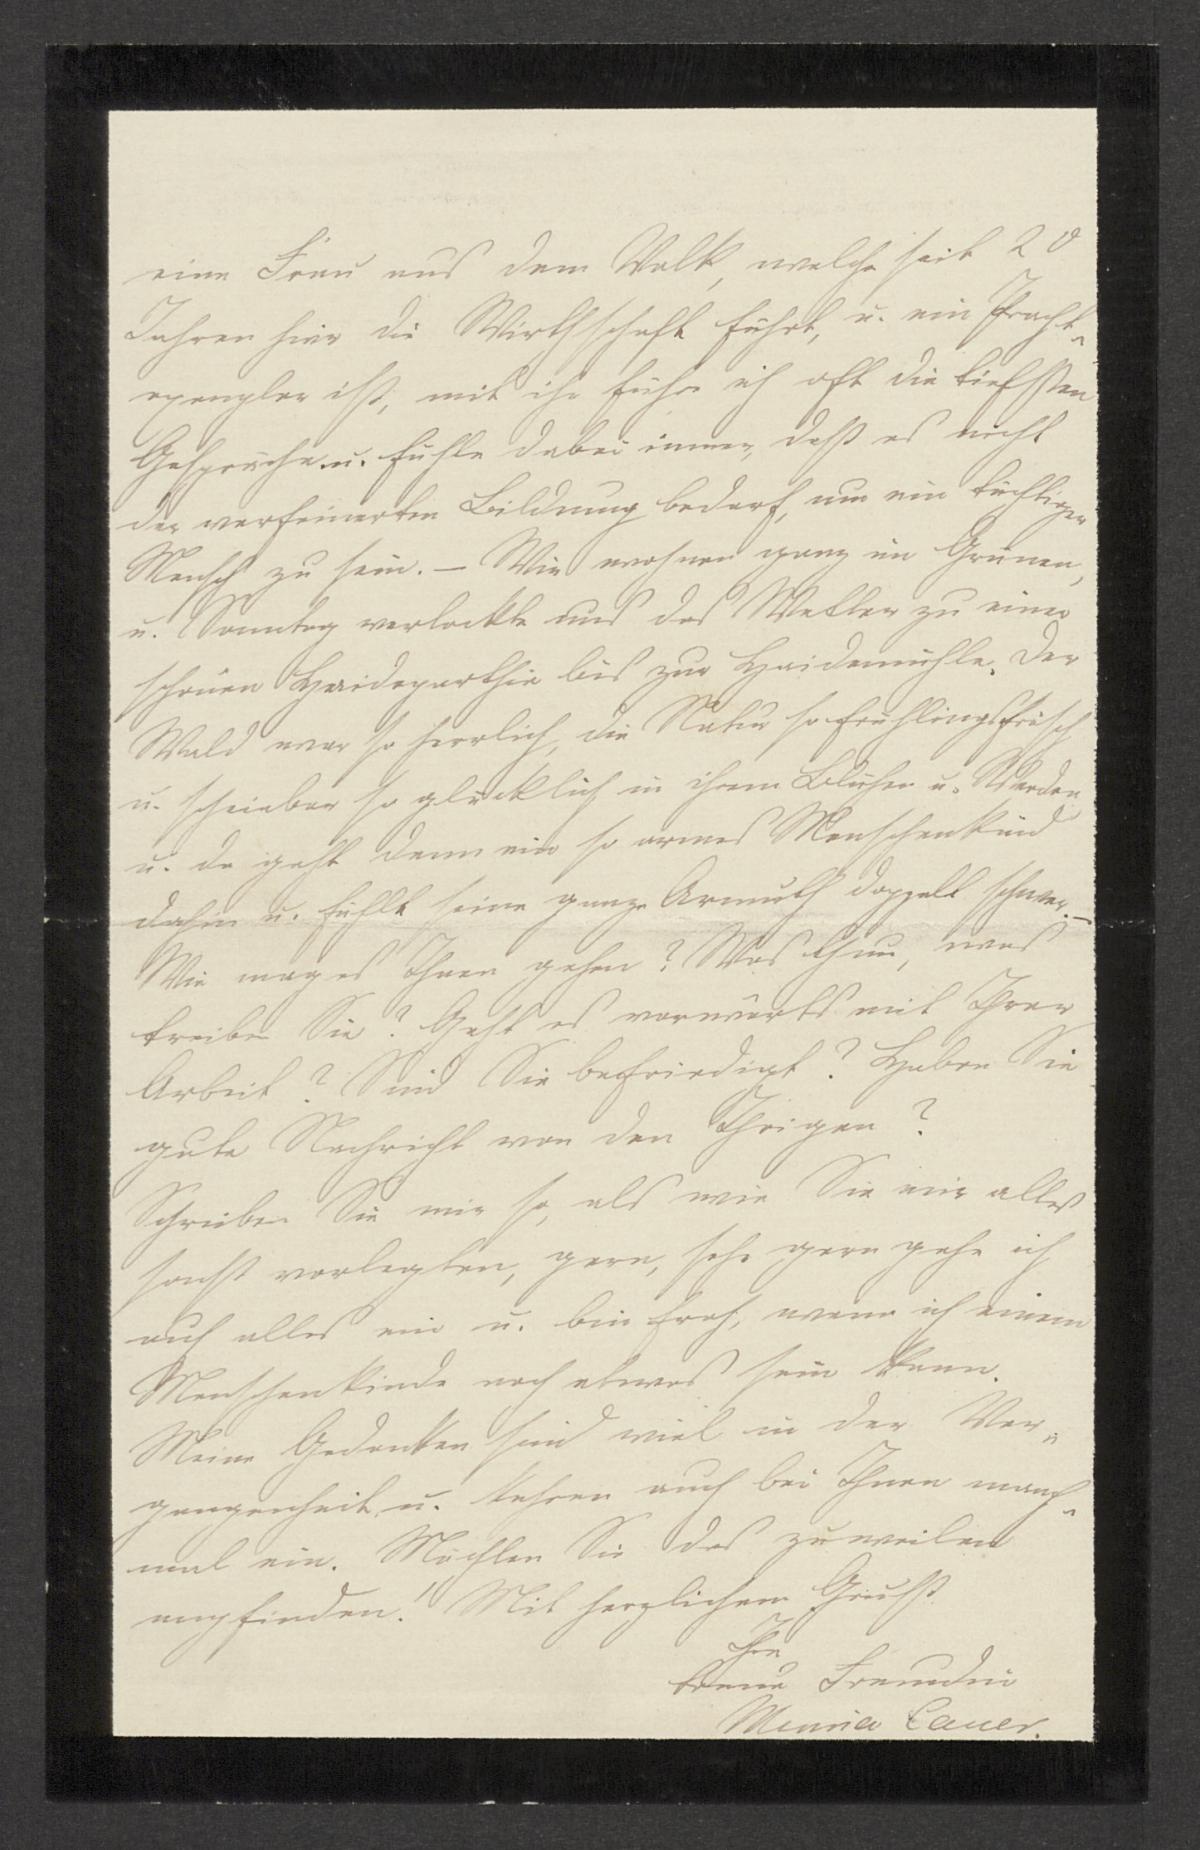 eine Frau aus dem Volk, welche seit 20
Jahren hier die Wirthschaft führt, u. ein Pracht-
exemplar ist, mit ihr führe ich oft die tiefsten
Gespräche u. fühle dabei immer, daß es nicht
der verfeinerten Bildung bedarf, um ein tüchtiger
Mensch zu sein. – Wir wohnen ganz im Grünen,
u. Sonntag verlockte uns das Wetter zu einer
schönen Haideparthie bis zur Haidemühle. Der
Wald war so herrlich, die Natur so frühlingsfrisch
u. scheinbar so glücklich in ihrem Blühen u. Werden
u. da geht denn ein so armes Menschenkind
dahin u. fühlt seine ganze Armuth doppelt schwer. –
Wie mag es Ihnen gehen? Was thun, was
treiben Sie? Geht es vorwärts mit Ihrer
Arbeit? Sind Sie befriedigt? Haben Sie
gute Nachricht von den Ihrigen?
Schreiben Sie mir so, als wie Sie mir alles
sonst vorlegten, gern, sehr gern gehe ich
auf alles ein u. bin froh, wenn ich einem
Menschenkinde noch etwas sein kann.
Meine Gedanken sind viel in der Ver-
gangenheit u. kehren auch bei Ihnen manch-
mal ein. Möchten Sie das zuweilen
empfinden! Mit herzlichem Gruß
Ihre
treue Freundin
Minna Cauer.